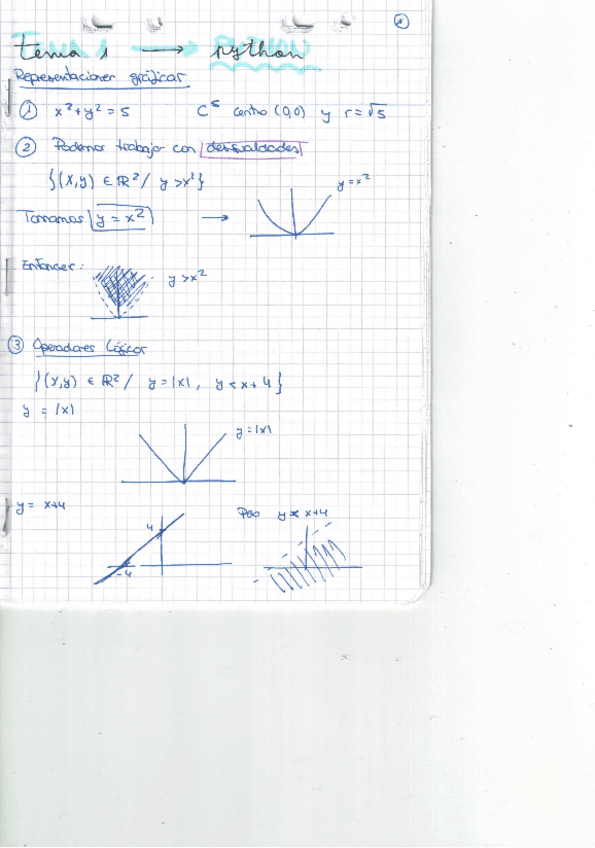 1
tema 1 → python
Representaciones gráficas
① x²+y² = 5 Cˢ centro (0,0) y r=√5
② Podemos trabajar con desigualdades
{(x,y) ∈ ℝ² / y > x²}
y = x²
Tomamos y = x² →
Entonces: y > x²
③ Operadores lógicos
{(x,y) ∈ ℝ² / y = |x| , y < x + 4}
y = |x|
y = |x|
y = x+4
Pero y < x+4
4
-4